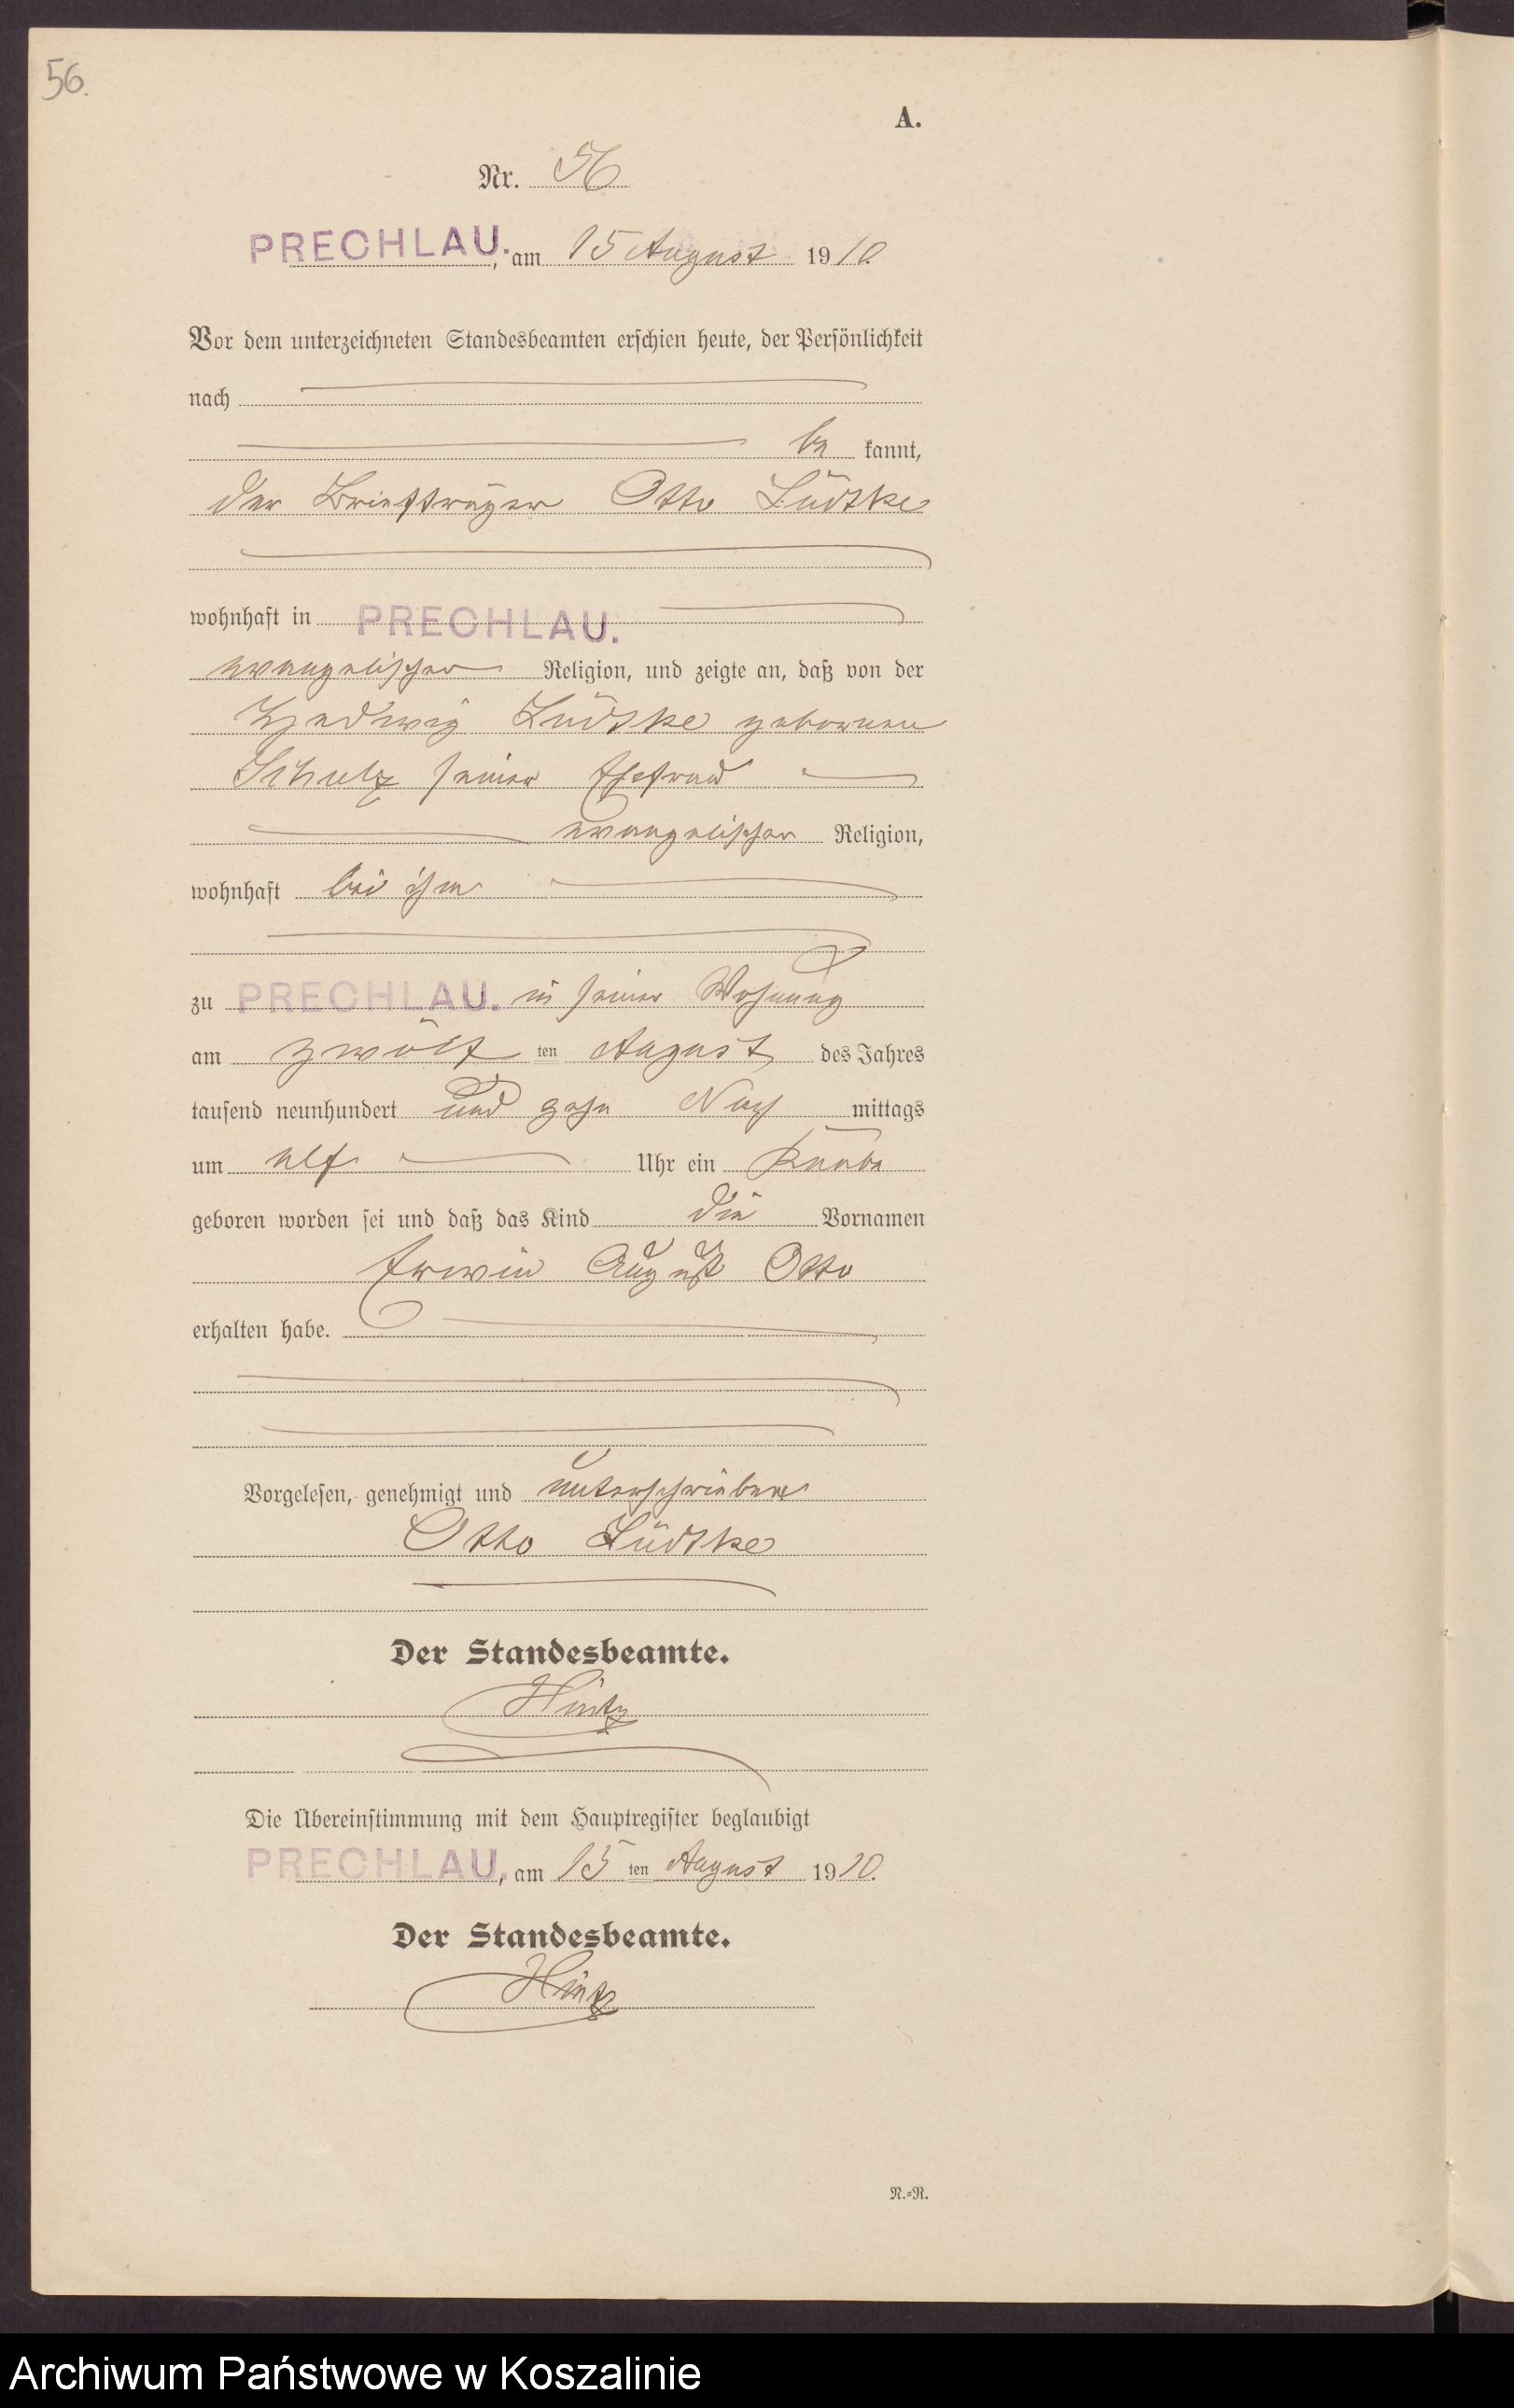 56.
A.
Nr. 56
PRECHLAU., am 15 August 1910.
Vor dem unterzeichneten Standesbeamten erschien heute, der Persönlichkeit
nach
be kannt,
der Briefträger Otto Lüdtke
wohnhaft in PRECHLAU.
evangelischer Religion, und zeigte an, daß von der
Hedwig Lüdtke geborenen
Schulz seiner Ehefrau
evangelischer Religion,
wohnhaft bei ihm
zu PRECHLAU. in seiner Wohnung
am zwölf ten August des Jahres
tausend neunhundert und zehn Nach mittags
um elf Uhr ein Knabe
geboren worden sei und daß das Kind die Vornamen
Erwin August Otto
erhalten habe.
Vorgelesen, genehmigt und unterschrieben
Otto Lüdtke
Der Standesbeamte.
Hintz
Die Übereinstimmung mit dem Hauptregister beglaubigt
PRECHLAU, am 15 ten August 1910.
Der Standesbeamte.
Hintz
N.=R.
Archiwum Państwowe w Koszalinie